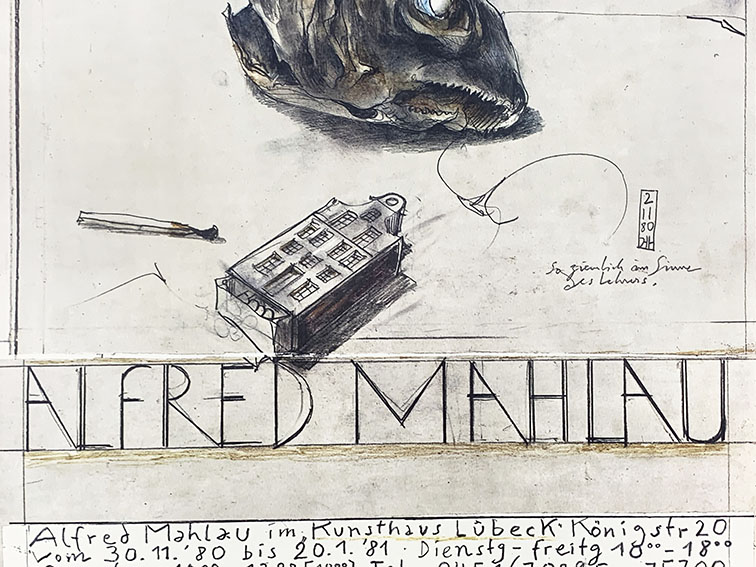 2
11
80
So ziemlich im Sinne
des Lehrers.
ALFRED MAHLAU
Alfred Mahlau im Kunsthaus Lübeck · Königstr 20
Vom 30.11.'80 bis 20.1.'81 · Dienstg-freitg 10⁰⁰-18⁰⁰